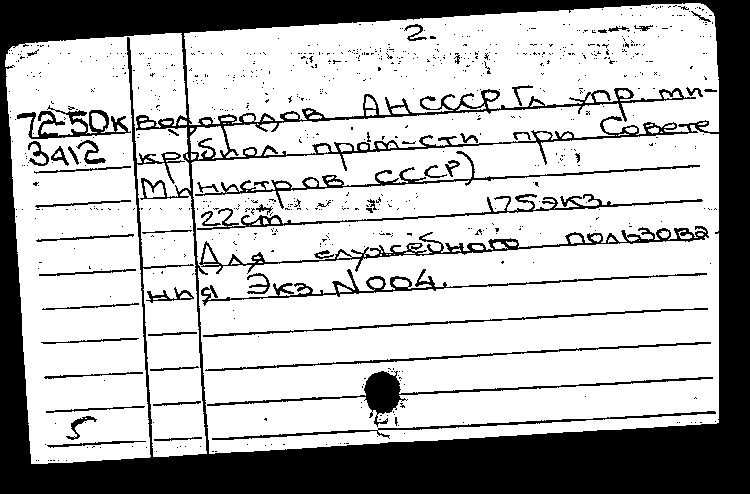 2.
72-50к водородов АН СССР. Гл. упр. ми-
3412 кробиол. пром-сти при Совете
Министров СССР)
22 ст. 175 экз.
Для служебного пользова-
ния. Экз. N 004.
5